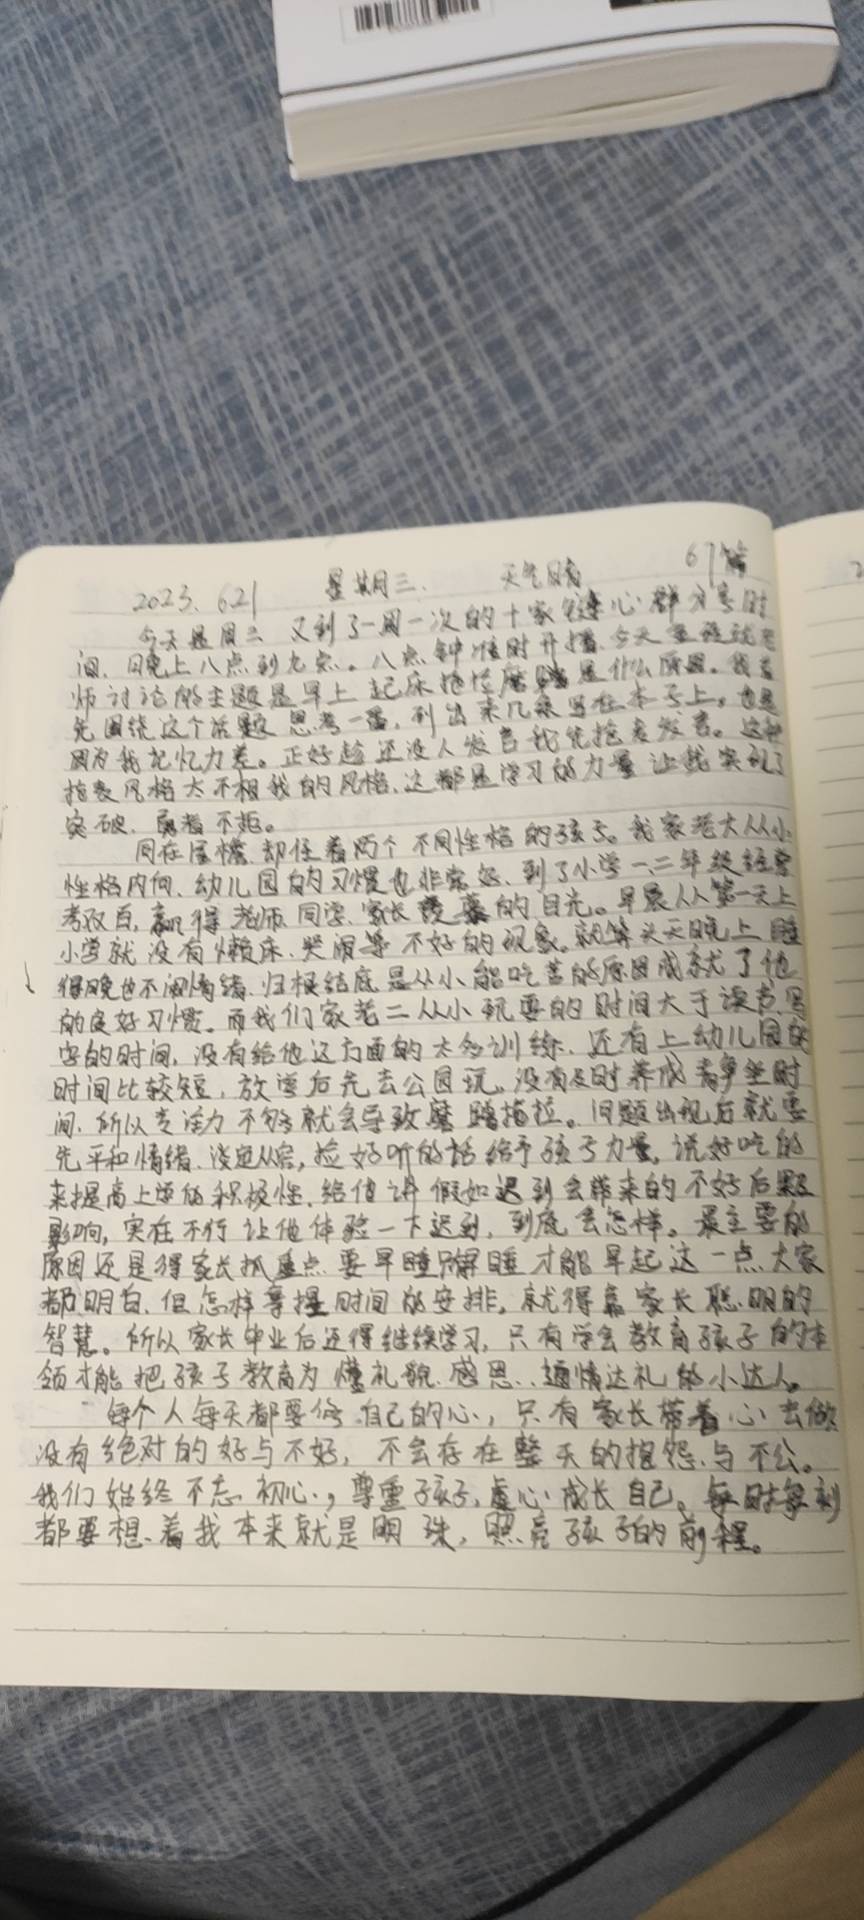 2023.6.21 星期三. 天气晴 67篇
今天是周三 又到了一周一次的十家链心群分享时
间、晚上八点到九点。八点钟准时开播、今天
师讨论的主题是早上起床拖拉磨蹭是什么原因。我首
先围绕这个话题思考一番,列出来几条写在本子上。也是
因为我记忆力差。正好趁还没人发言我先抢麦发言。这种
抢麦风格大不相我的风格、这都是学习的力量让我实现了
突破、勇者不拒。
同在屋檐、却住着两个不同性格的孩子。我家老大从小
性格内向、幼儿园的习惯也非常好、到了小学一、二年级经常
考双百,赢得老师、同学、家长羡慕的目光。早晨从第一天上
小学就没有懒床、哭闹等不好的现象。就算头天晚上睡
得晚也不闹情绪、归根结底是从小能吃苦的原因成就了他
的良好习惯。而我们家老二从小玩耍的时间大于读书、写
字的时间,没有给他这方面的太多训练、还有上幼儿园的
时间比较短,放学后先去公园玩。没有及时养成静坐时
间、所以专注力不够就会导致磨蹭拖拉。问题出现后就要
先平和情绪、淡定从容,捡好听的话给予孩子力量,说好吃的
来提高上学的积极性、给他讲假如迟到会带来的不好后果及
影响,实在不行让他体验一下迟到,到底会怎样。最主要的
原因还是得家长抓重点、要早睡只有早睡才能早起这一点大家
都明白、但怎样掌握时间的安排,就得靠家长聪明的
智慧。所以家长毕业后还得继续学习,只有学会教育孩子的本
领才能把孩子教育为懂礼貌、感恩、通情达礼的小达人。
每个人每天都要修自己的心,只有家长带着心去做
没有绝对的好与不好,不会存在整天的抱怨、与不公。
我们始终不忘初心,尊重孩子,虚心成长自己。每时每刻
都要想着我本来就是明珠,照亮孩子的前程。